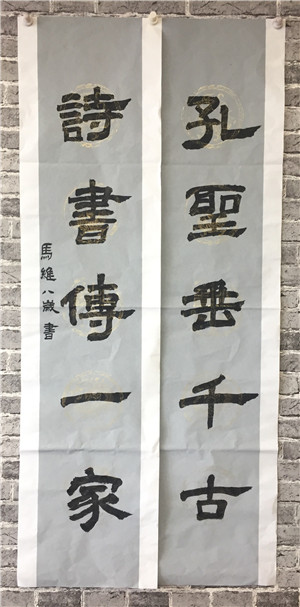 孔聖垂千古
詩書傳一家
馬維八歲書